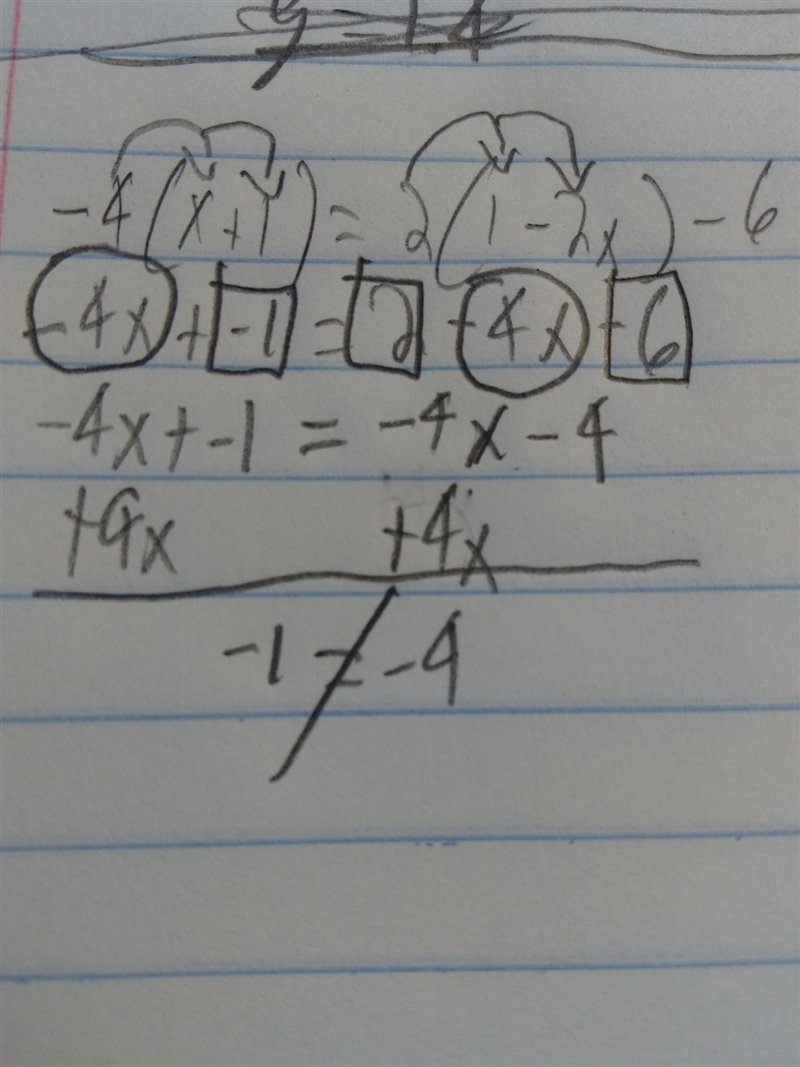 y = 14
-4(x+1) = 2(1-2x)-6
-4x + -1 = 2 - 4x - 6
-4x + -1 = -4x - 4
+4x +4x
-1 ≠ -4